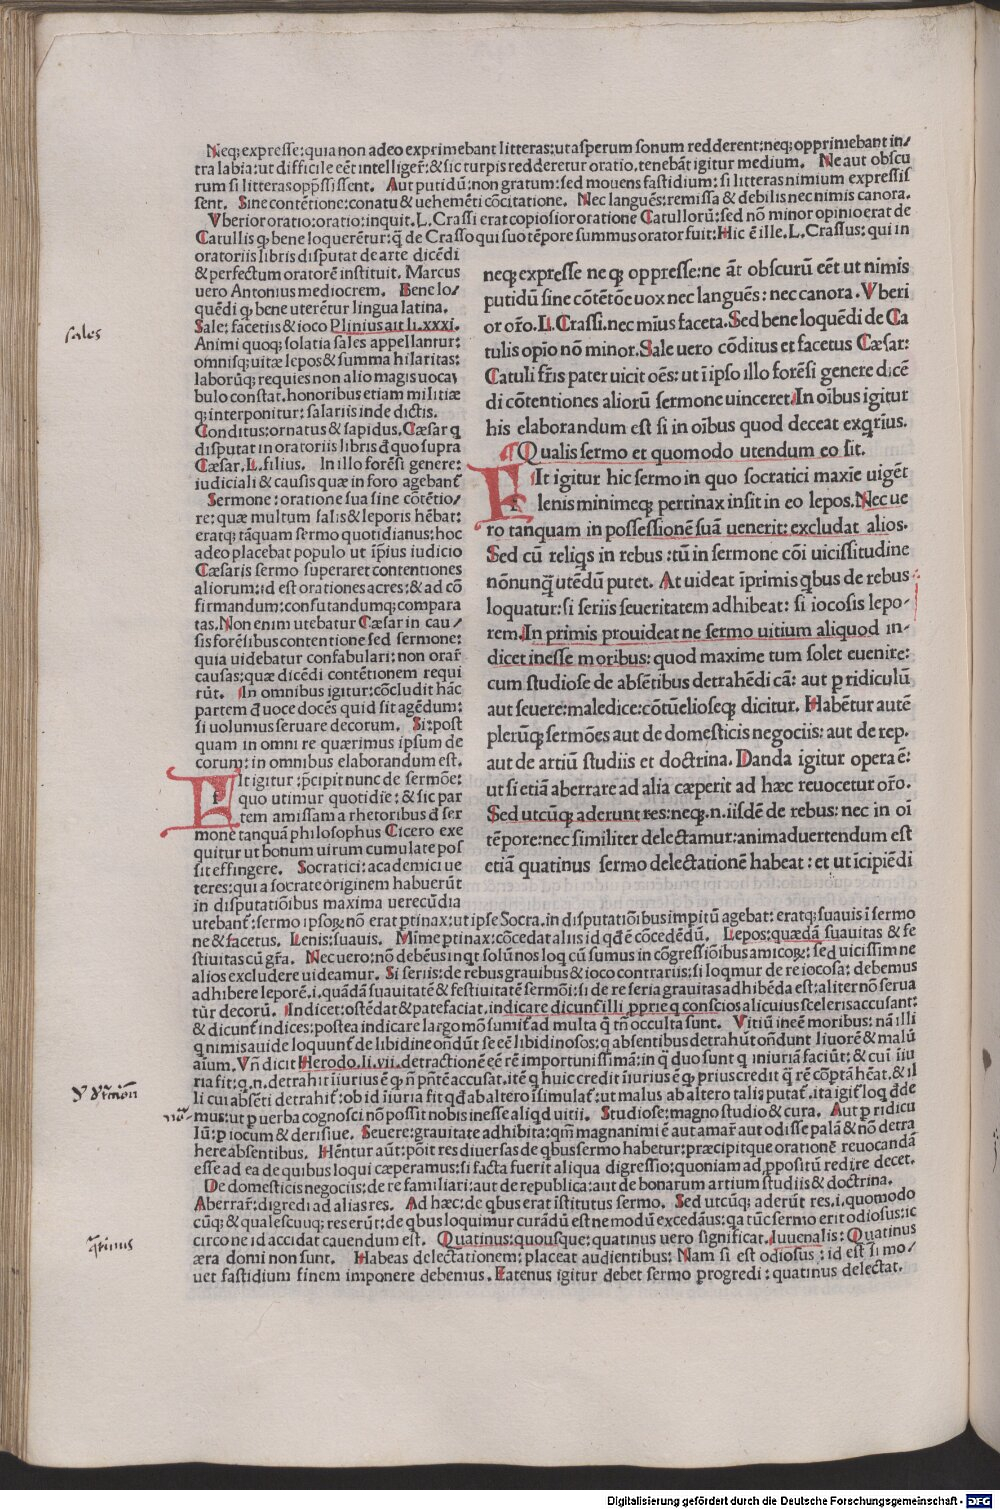 Neq; expresse: quia non adeo exprimebant litteras: ut asperum sonum redderent: neq; opprimebant in/
tra labia: ut difficile eēt intelliger̃: & sic turpis redderetur oratio. tenebāt igitur medium. Ne aut obscu
rum si litteras opp̃ssissent. Aut putidū: non gratum: sed mouens fastidium: si litteras nimium express
sent. Sine contētione: conatu & uehemēti cōcitatione. Nec languēs: remissa & debilis nec nimis canora.
Vberior oratio: oratio: inquit. L. Crassi erat copiosior oratione Catullorū: sed nō minor opinio erat de
Catullis ꝙ bene loquerētur: q̃ de Crasso qui suo tēpore summus orator fuit: Hic ē ille. L. Crassus: qui in
oratoriis libris disputat de arte dicēdi
& perfectum oratorē instituit. Marcus
uero Antonius mediocrem. Bene lo/
quēdi ꝙ bene uterētur lingua latina.
Sale: facetiis & ioco Plinius ait li. xxxi.
Animi quoq; solatia sales appellantur:
omnisq; uitæ lepos & summa hilaritas:
laborūq; requies non alio magis uoca
bulo constat. honoribus etiam militiæ
q; interponitur: salariis inde dictis.
Conditus: ornatus & sapidus. Cæsar q
disputat in oratoriis libris đ quo supra
Cæsar. L. filius. In illo forēsi genere:
iudiciali & causis quæ in foro agebant̃
Sermone: oratione sua sine cōtētio/
re: quæ multum salis & leporis hēbat:
eratq; tāquam sermo quotidianus: hoc
adeo placebat populo ut ip̄ius iudicio
Cæsaris sermo superaret contentiones
aliorum: id est orationes acres: & ad cō
firmandum: confutandumq; compara
tas. Non enim utebatur Cæsar in cau/
sis forēsibus contentione sed sermone:
quia uidebatur confabulari: non orar̃
causas: quæ dicēdi contētionem requi
rūt. In omnibus igitur: cōcludit hāc
partem đ uoce docēs quid sit agēdum:
si uolumus seruare decorum. Si: post
quam in omni re quærimus ipsum de
corum: in omnibus elaborandum est.
Elt igitur: p̄cipit nunc de sermōe:
quo utimur quotidie: & sic par
tem amissam a rhetoribus đ ser
mone tanquā philosophus Cicero exe
quitur ut bonum uirum cumulate pos
sit effingere. Socratici: academici ue
teres: qui a socrate originem habuerūt
in disputatiōibus maxima uerecūdia
neq; expresse neq; oppresse: ne āt obscurū eēt ut nimis
putidū sine cōtētōe uox nec languēs: nec canora. Vberi
or or̄o. L. Crassi. nec mīus faceta. Sed bene loquēdi de Ca
tulis opīo nō minor. Sale uero cōditus et facetus Cæsar:
Catuli fr̄is pater uicit oēs: ut ī ipso illo forēsi genere dicē
di cōtentiones aliorū sermone uinceret. In oībus igitur
his elaborandum est si in oībus quod deceat exqrīus.
Qualis sermo et quomodo utendum eo sit.
Elt igitur hic sermo in quo socratici maxīe uigēt
lenis minimeq; pertinax insit in eo lepos. Nec ue
ro tanquam in possessionē suā uenerit: excludat alios.
Sed cū reliqs in rebus: tū in sermone cōi uicissitudine
nōnunq̃ utēdū putet. At uideat īprimis qbus de rebus
loquatur: si seriis seueritatem adhibeat: si iocosis lepo-
rem. In primis prouideat ne sermo uitium aliquod in-
dicet inesse moribus: quod maxime tum solet euenire:
cum studiose de absētibus detrahēdi cā: aut ꝑ ridiculū
aut seuere: maledice: cōtūelioseq; dicitur. Habētur autē
plerūq; sermōes aut de domesticis negociis: aut de rep.
aut de artiū studiis et doctrina. Danda igitur opera ē:
ut si etiā aberrare ad alia cæperit ad hæc reuocetur or̄o.
Sed utcūq; aderunt res: neq;. n. iisdē de rebus: nec in oī
tēpore: nec similiter delectamur: animaduertendum est
etiā quatinus sermo delectationē habeat: et ut īcipiēdi
utebant̃: sermo ipsoꝝ nō erat ptinax: ut ipse Socra. in disputatiōibus impitū agebat: eratq; suauis ī sermo
ne & facetus. Lenis: suauis. Mīme ptinax: cōcedat aliis id qđ ē cōcedēdū. Lepos: quædā suauitas & fe
stiuitas cū gr̄a. Nec uero: nō debēus inqt solū nos loq cū sumus in cōgressiōibus amicoꝝ: sed uicissim ne
alios excludere uideamur. Si seriis: de rebus grauibus & ioco contrariis: si loqmur de re iocosa: debemus
adhibere leporē. i. quādā suauitatē & festiuitatē sermōi: si de re seria grauitas adhibēda est: aliter nō serua
tūr decorū. Indicet: ostēdat & patefaciat. indicare dicunt̃ illi pprie q conscios alicuius sceleris accusant:
& dicunt̃ indices: postea indicare largo mō sumit̃ ad multa q̃ tn̄ occulta sunt. Vitiū ineē moribus: nā illi
q nimis auide loquunt̃ de libidine ondūt se eē libidinosos: q absentibus detrahūt ondunt liuorē & malū
aīum. Vn̄ dicit Herodo. li. vii. detractionē eē rē importunissimā: in q̃ duo sunt q iniuriā faciūt: & cui īiu
ria fit: q. n. detrahit īiurius ē ꝙ n̄ pn̄tē accusat. itē q huic credit īiurius ē ꝙ prius credit q̃ rē cōptā hēat. & il
li cui absēti detrahit̃: ob id īiuria fit qđ ab altero īsimulat̃: ut malus ab altero talis putat̃. ita igit̃ loq đde
mus: ut ꝑ uerba cognosci nō possit nobis inesse aliqd uitii. Studiose: magno studio & cura. Aut ꝑ ridicu
lū: ꝑ iocum & derisiue. Seuere: grauitate adhibita: qm̄ magnanimi ē aut amar̃ aut odisse palā & nō detra
here absentibus. Hēntur aūt: pōit res diuersas de qbus sermo habetur: præcipitque orationē reuocandā
esse ad ea de quibus loqui cæperamus: si facta fuerit aliqua digressio: quoniam ad ppositū redire decet.
De domesticis negociis: de re familiari: aut de republica: aut de bonarum artium studiis & doctrina.
Aberrar̃: digredi ad alias res. Ad hæc: de qbus erat īstitutus sermo. Sed utcūq; aderūt res. i. quomodo
cūq; & qualescuuq; res erūt: de qbus loquimur curādū est ne modū excedāus: qa tūc sermo erit odiosus: ic
circo ne id accidat cauendum est. Quatinus: quousque: quatinus uero significat. Iuuenalis: Quatinus
æra domi non sunt. Habeas delectationem: placeat audientibus: Nam si est odiosus: id est si mo/
uet fastidium finem imponere debemus. Eatenus igitur debet sermo progredi: quatinus delectat.
sales
Digitalisierung gefördert durch die Deutsche Forschungsgemeinschaft - DFG